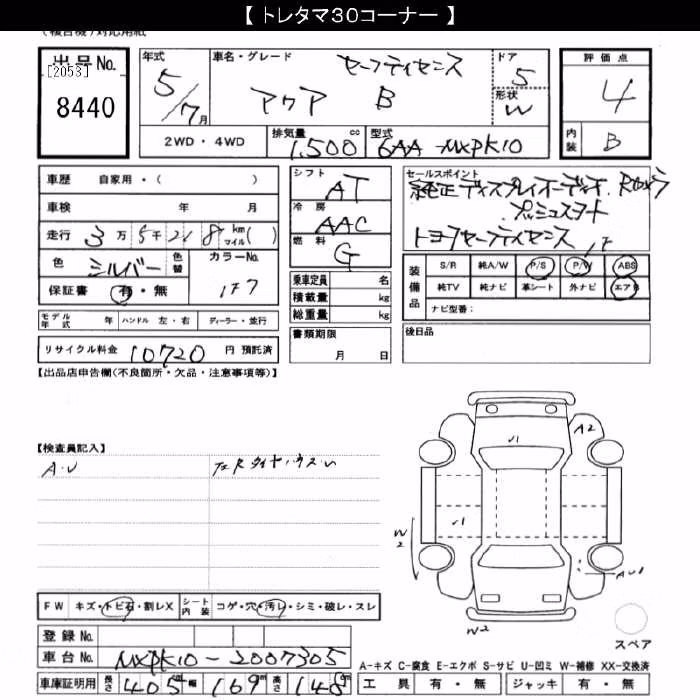 【 トレタマ30コーナー 】
(複合機)対応用紙
出品No.
[2053]
8440
年式 5/7月
車名・グレード セーフティセンス
アクア B
ドア 5
形状 W
評価点
4
内装 B
2WD・4WD
排気量 1,500 cc
型式 6AA-MXPK10
車歴 自家用・( )
車検 年 月
走行 3万5千218 km マイル( )
色 シルバー 色替
カラーNo. 1F7
保証書 有・無
モデル年式 年 ハンドル 左・右 ディーラー・並行
リサイクル料金 10720 円 預託済
シフト AT
冷房 AAC
燃料 G
乗車定員 名
積載量 kg
総重量 kg
書類期限
月 日
セールスポイント
純正ディスプレイオーディオ. Rカメラ
プッシュスタート
トヨタセーフティセンス
装備品
S/R 純A/W P/S P/W ABS
純TV 純ナビ 革シート 外ナビ エアB
ナビ型番:
後日品
【出品店申告欄(不良箇所・欠品・注意事項等)】
【検査員記入】
A・U
A2
U1
U1
W2
AU1
W2
スペア
FW キズ・トビ石・割レX シート内装 コゲ・穴・汚レ・シミ・破レ・スレ
登録No.
車台No. MXPK10-2007305
車庫証明用 長さ 405cm 幅 169cm 高さ 148cm
A-キズ C-腐食 E-エクボ S-サビ U-凹ミ W-補修 XX-交換済
工具 有・無 ジャッキ 有・無